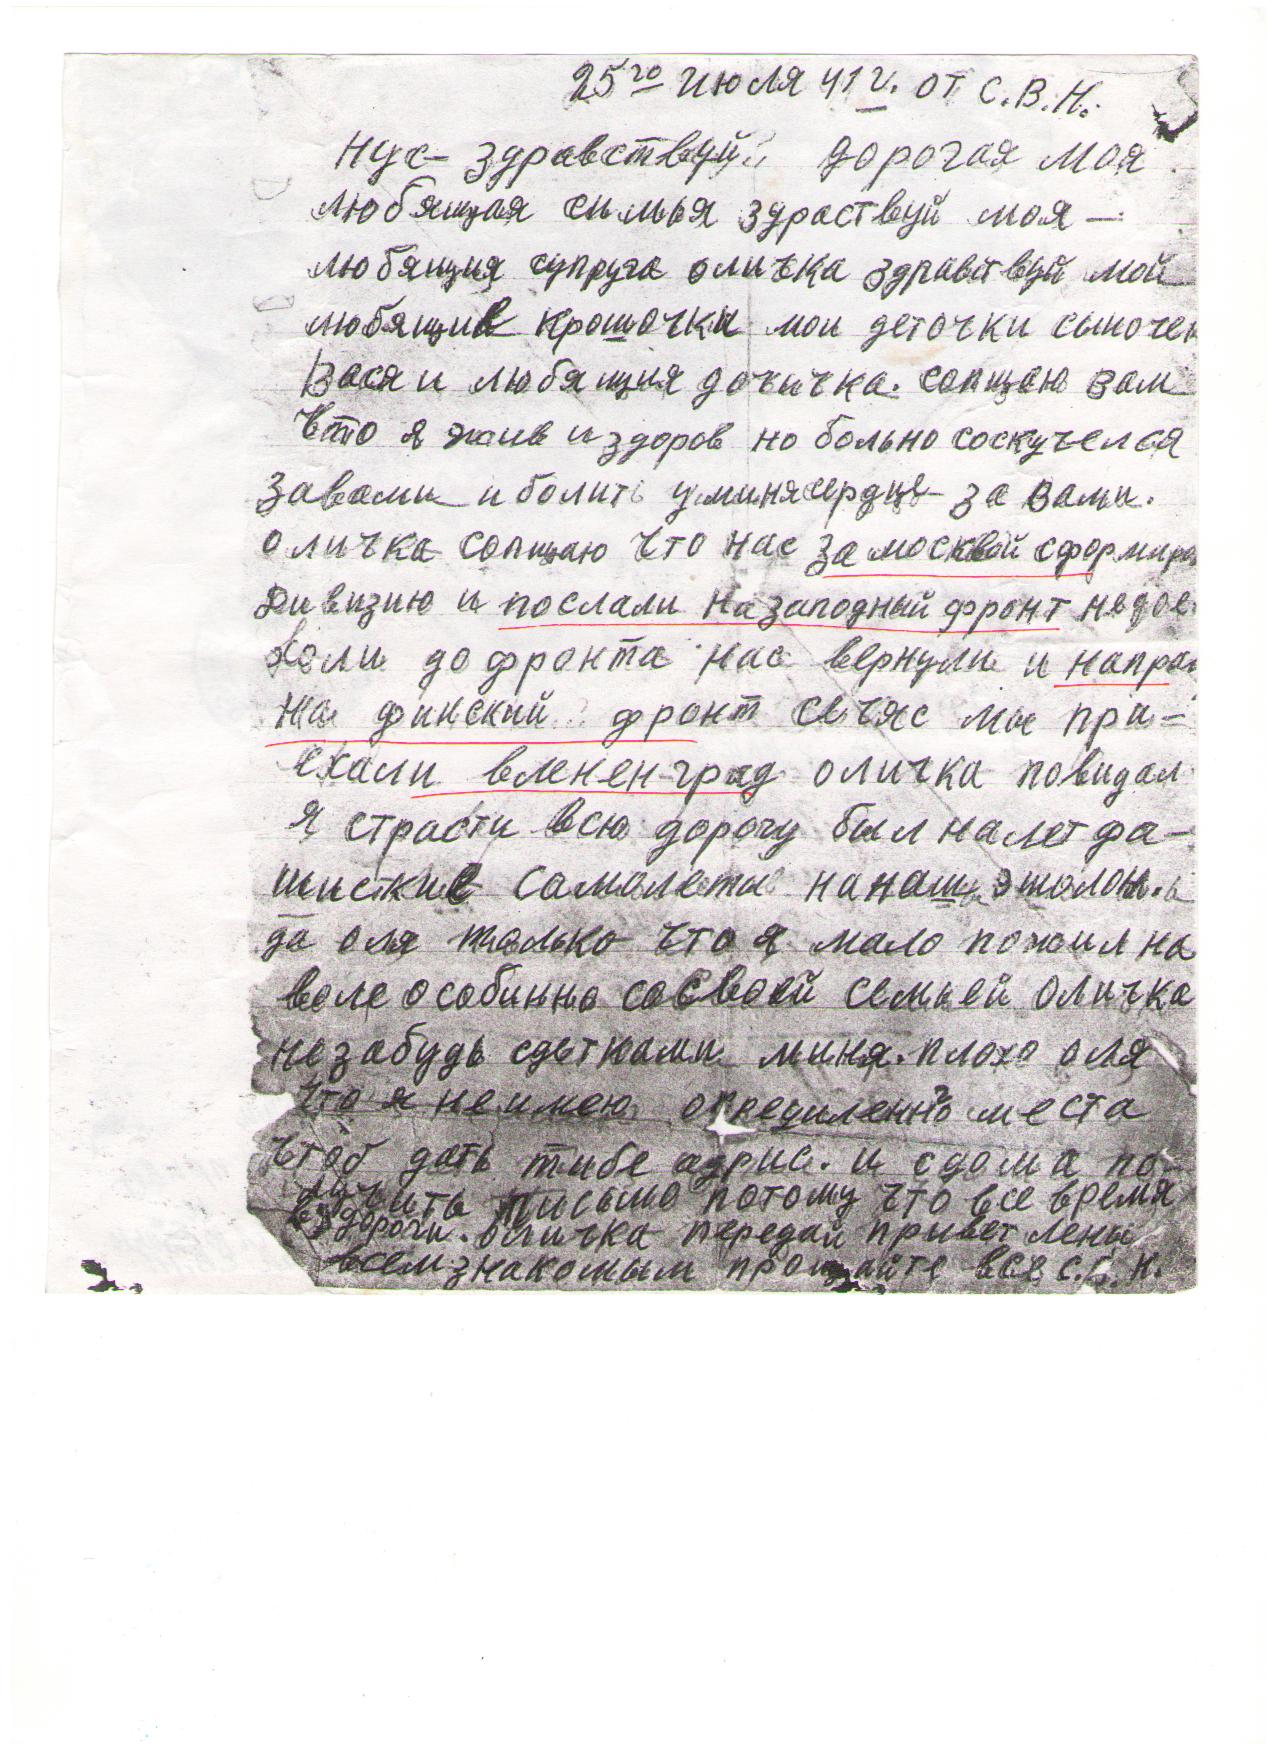 25го июля 41 г. от С.В.Н.
Нус- здравствуй дорогая моя
любящая симья здраствуй моя —
любящия супруга оличка здравствуй мой
любящие крошочки мои деточки сыночек
Вася и любящия дочичка. сопщаю вам
что я жив и здоров но больно соскучелся
завами и болить уминя сердце за вами.
оличка сопщаю что нас за москвой сформиро
дивизию и послали назаподный фронт недое
хали до фронта нас вернули и направ
на финский фронт сичяс мы при-
ехали вленен-град оличка повидал
я страсти всю дорогу был налет фа-
шисткие самолеты нанаш эшолон.
да оля только что я мало пожил на
воле особинно сосвоей семьей оличка
незабудь сдетками миня. плохо оля
что я неимею определенно места
чтоб дать тибе адрис. и сдома по-
лучить письмо потому что все время
в дороги. оличка передай привет лены
всем знакомым прощайте все с.в.н.